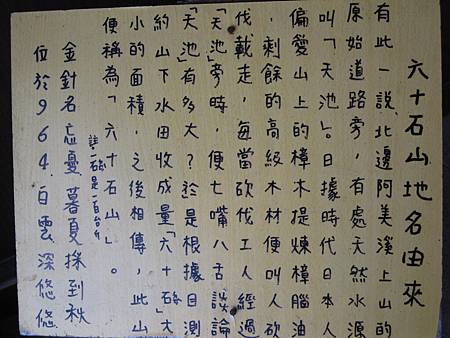 六十石山地名由來
有此一說,北邊阿美溪上山的
原始道路旁,有處天然水源
叫「天池」。日據時代日本人
偏愛山上的樟木提煉樟腦油
,剩餘的高級木材便叫人砍
伐載走,每當砍伐工人經過
「天池」旁時,便七嘴八舌談論
「天池」有多大?於是根據目測
約山下水田收成量「六十碄」大
小的面積,之後相傳,此山
便稱為「六十石山」。
註:一碄是一百台斤
金針名忘憂暮夏採到秋
位於964.白雲深悠悠